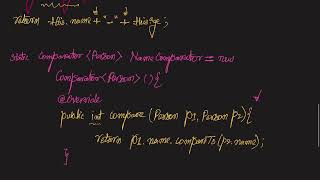 return this.name + "-" + this.age;
static Comparator<Person> NameComparator = new
Comparator<Person>(){
@Override
public int compare (Person p1, Person p2){
return p1.name.compareTo(p2.name);
}